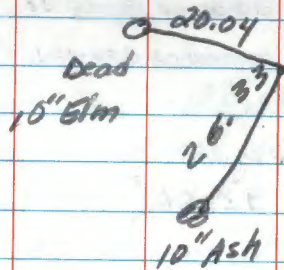 20.04
Dead
10" Elm
10" Ash